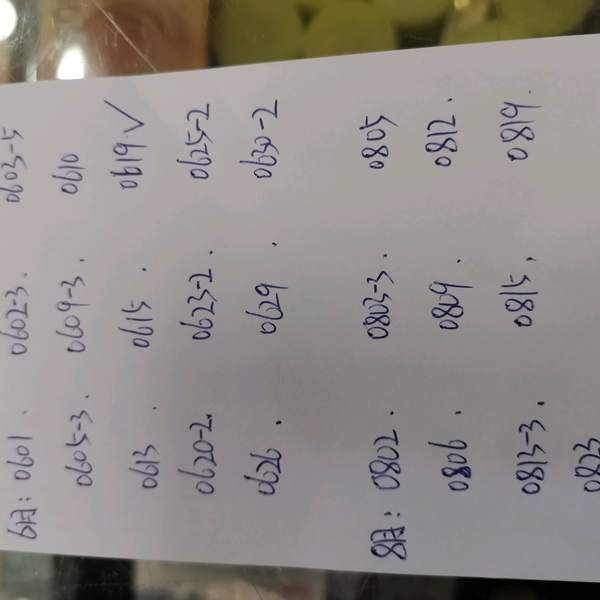 6月: 0601. 0602-3. 0603-5
0605-3. 0609-3. 0610
0613. 0615. 0619.✓
0620-2. 0623-2. 0625-2
0626. 0629. 0630-2
8月: 0802. 0803-3. 0805
0806. 0809. 0812.
0813-3. 0815. 0819.
0823